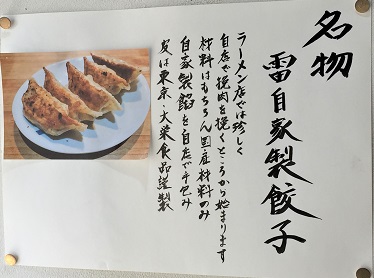 名物
雷自家製餃子
ラーメン店では珍しく
自店で挽肉を挽くところから始まります
材料はもちろん国産材料のみ
自家製餡を自店で手包み
皮は東京・大栄食品謹製